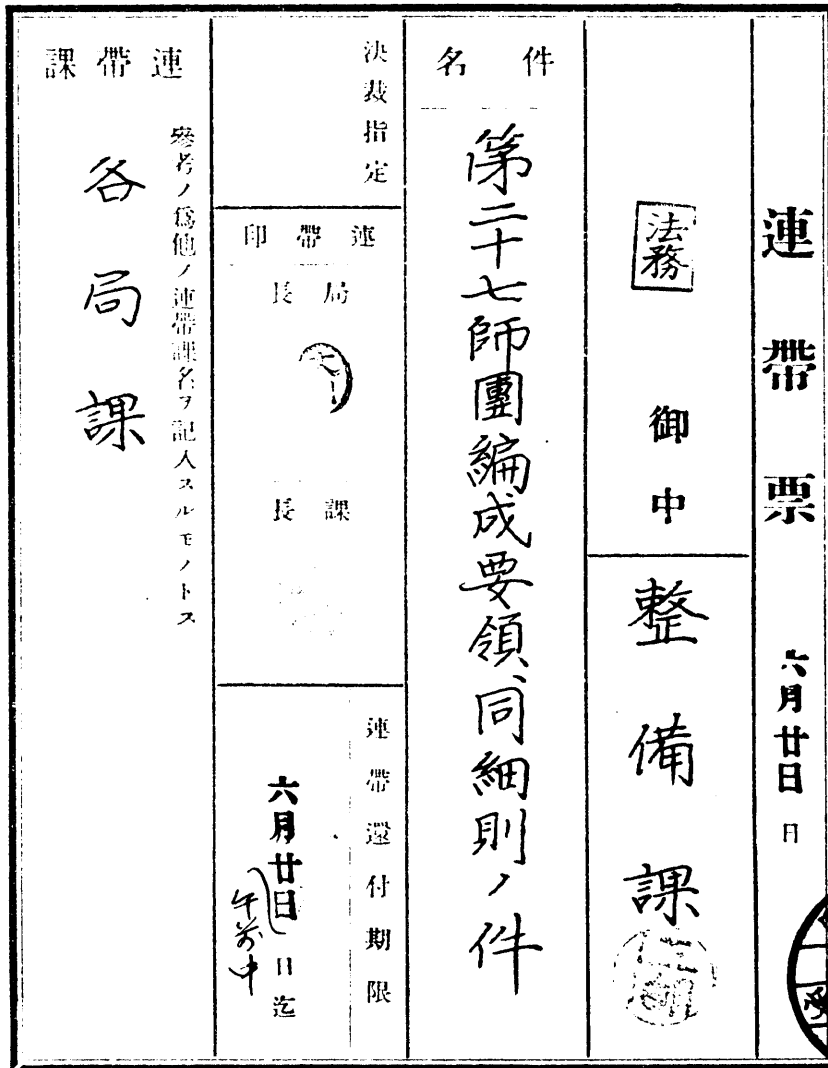 連帶票 六月廿日 日
法務 御中
整備課
件名
第二十七師團編成要領、同細則ノ件
決裁指定
連帶印
局長
課長
連帶還付期限
六月廿日 日迄
午前中
連帶課
參考ノ爲他ノ連帶課名ヲ記入スルモノトス
各局課